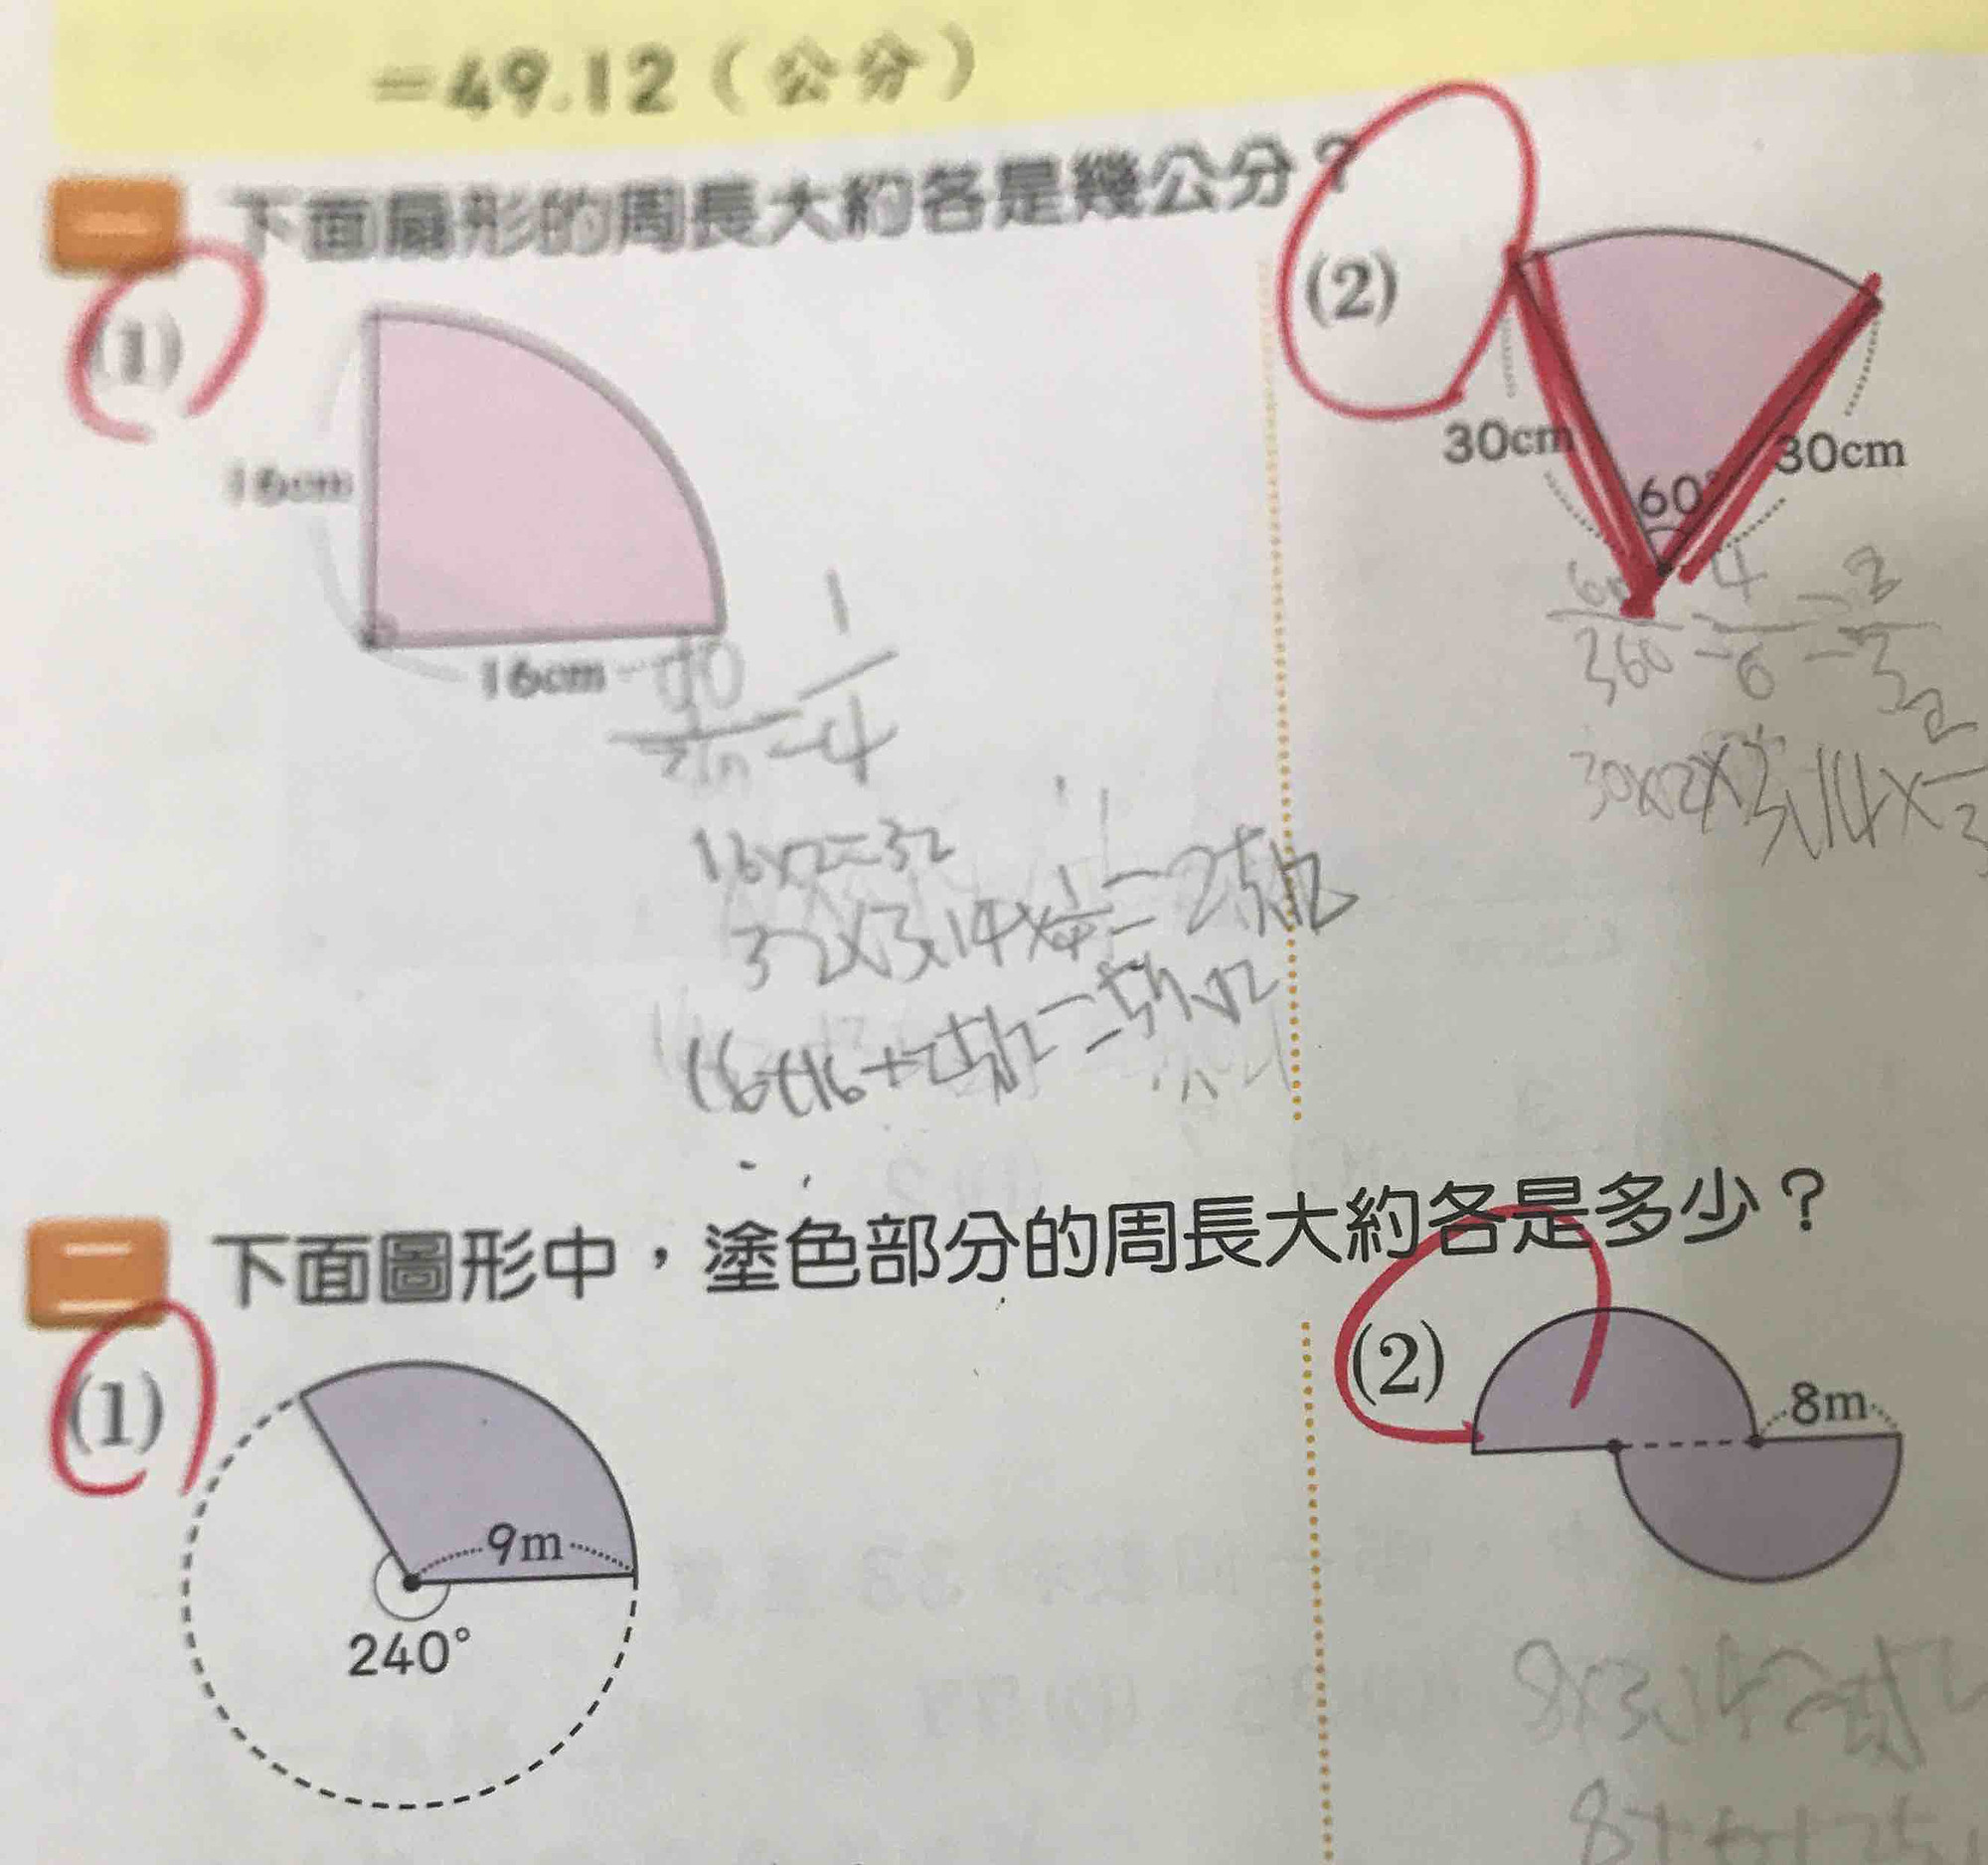 =49.12(公分)
一 下面扇形的周長大約各是幾公分?
(1)
16cm
16cm
1/4
16×2=32
32×3.14×1/4=25.12
(2)
30cm
30cm
60°
60/360
30×2×3.14×
二 下面圖形中,塗色部分的周長大約各是多少?
(1)
9m
240°
(2)
8m